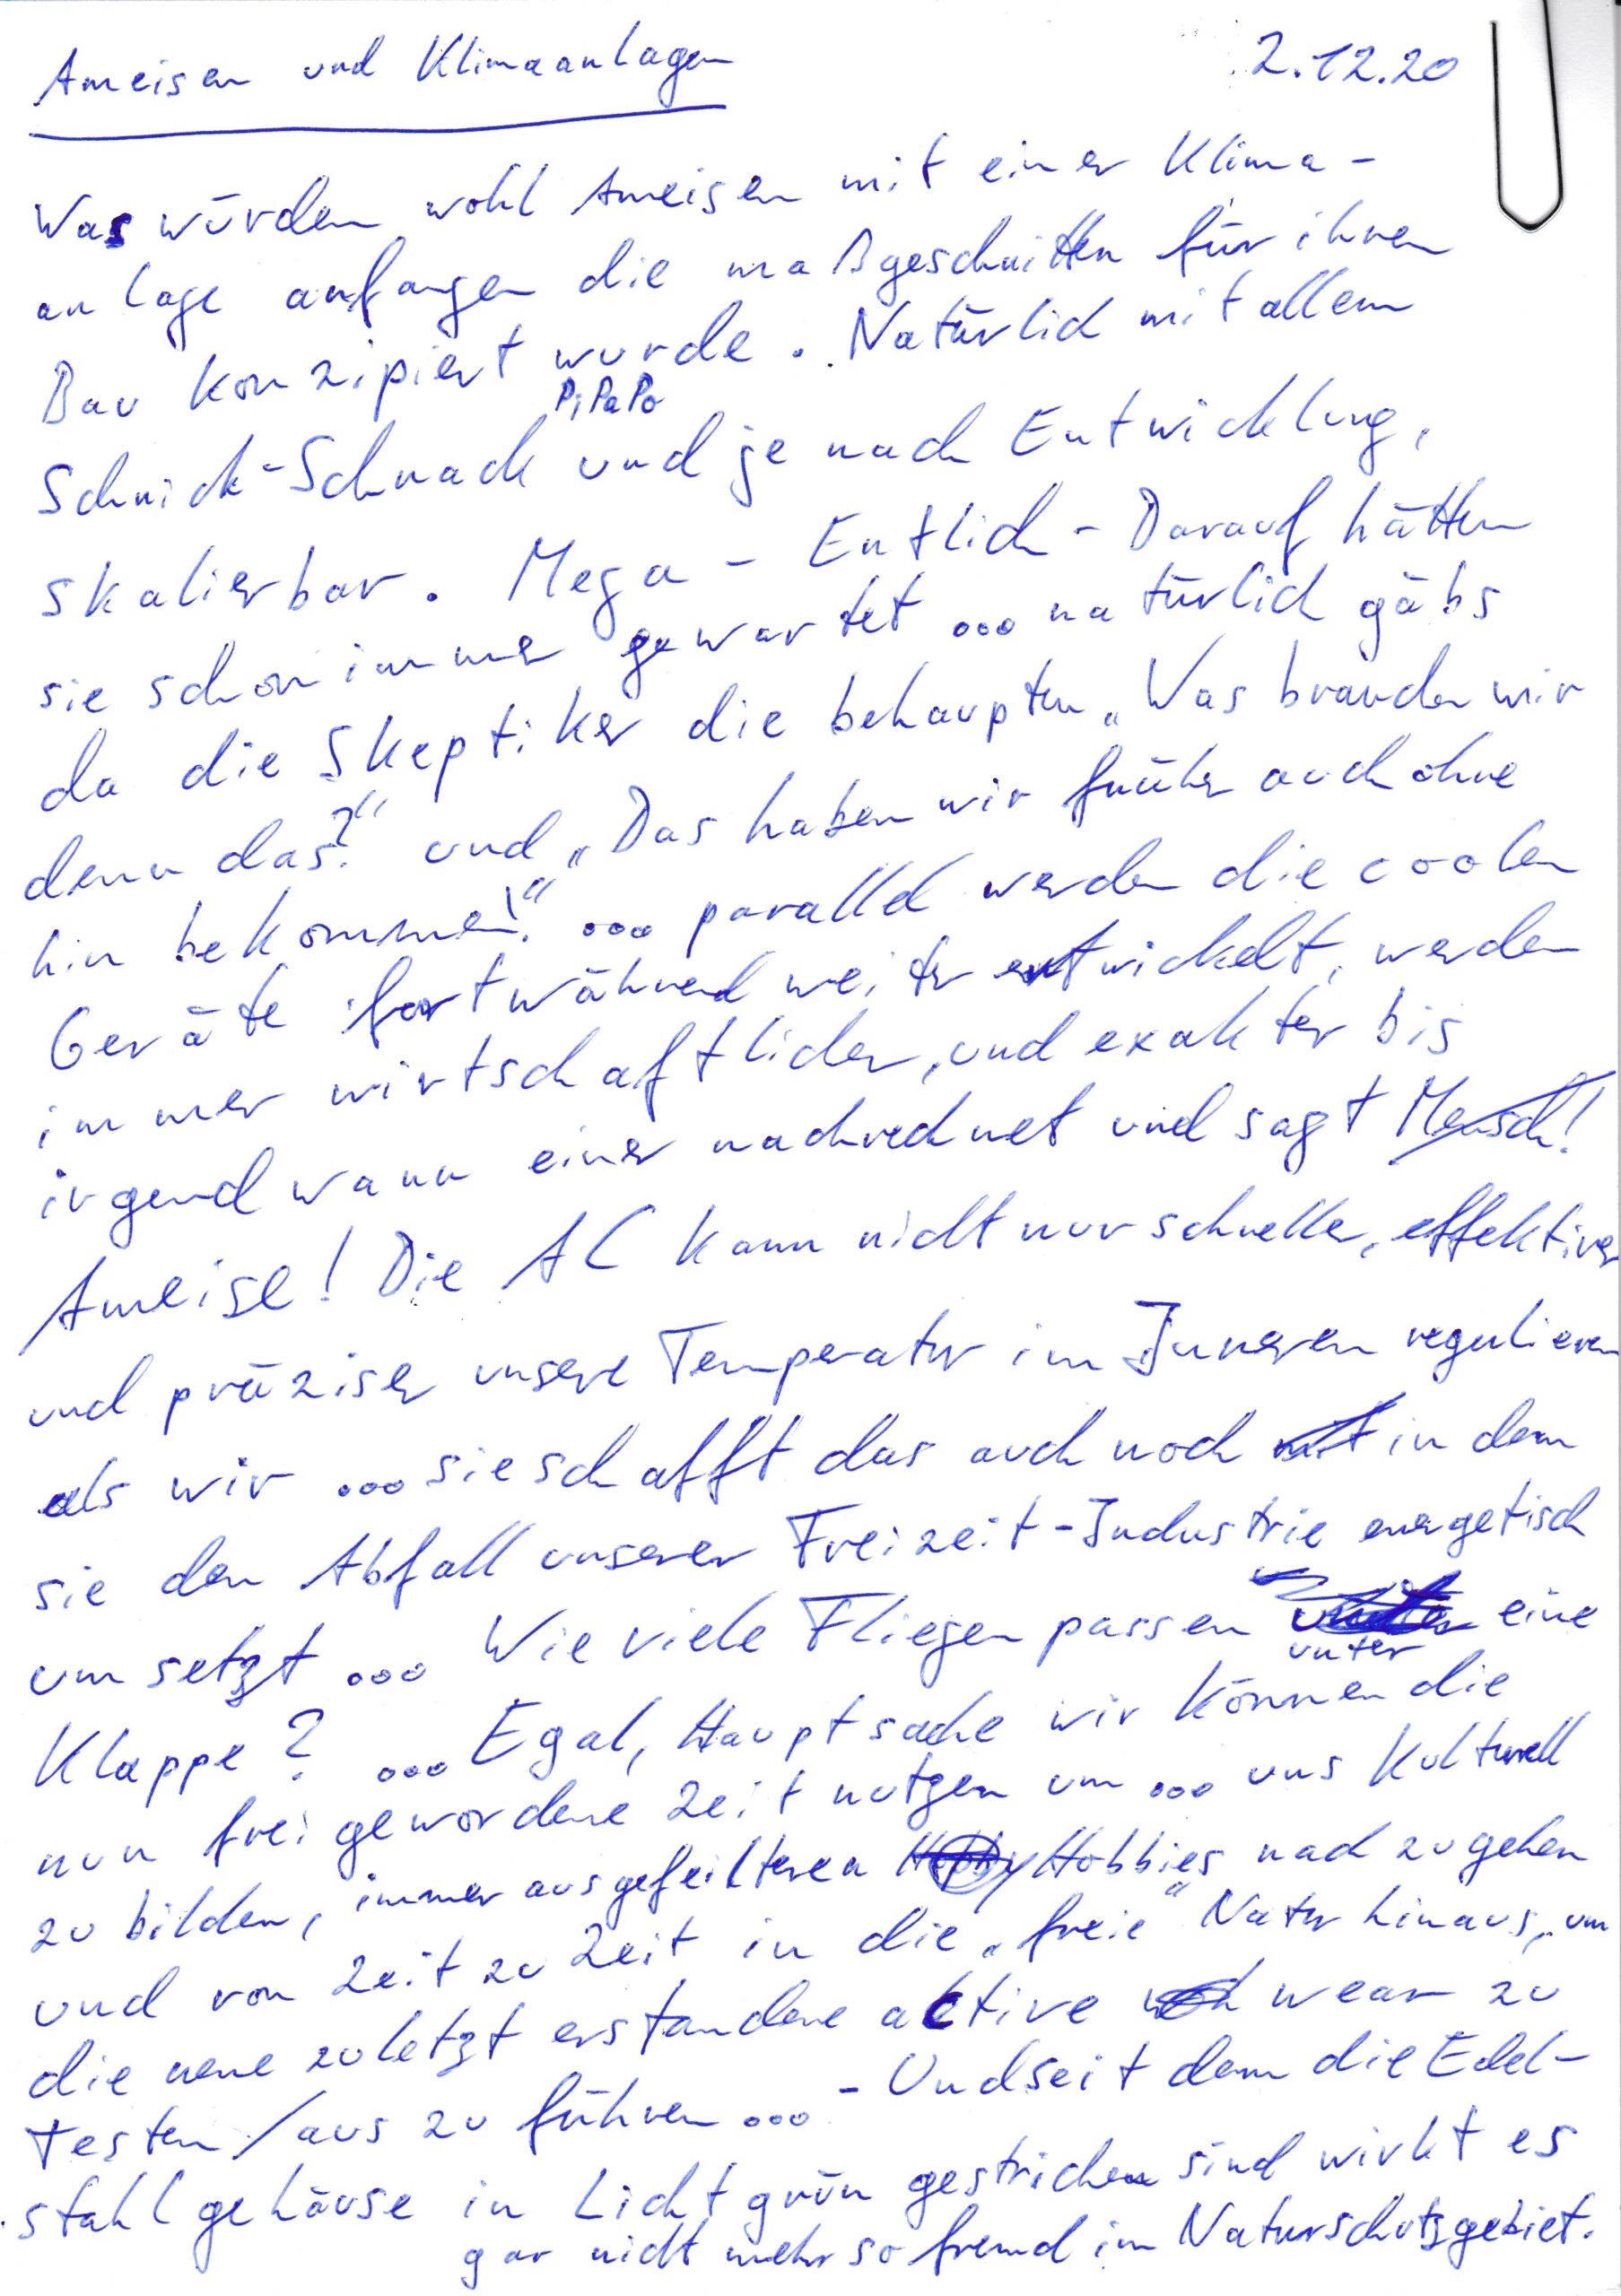 Ameisen und Klimaanlagen 2.12.20
Was würden wohl Ameisen mit einer Klima-
anlage anfangen die maßgeschnitten für ihren
Bau konzipiert wurde. Natürlich mit allem
PiPaPo
Schnick-Schnack und je nach Entwicklung,
skalierbar. Mega - Entlich - Darauf hätten
sie schon immer gewartet ... natürlich gäbs
da die Skeptiker die behaupten „Was brauchen wir
denn das?" und „Das haben wir früher auch ohne
hin bekommen!" ... parallel werden die coolen
Geräte fortwährend weiter entwickelt, werden
immer wirtschaftlicher, und exakter bis
irgendwann einer nachrechnet und sagt Mensch!
Ameise! Die AC kann nicht nur schneller, effektiver
und präziser unsere Temperatur im Inneren regulieren
als wir ... sie schafft das auch noch mit in dem
sie den Abfall unserer Freizeit-Industrie energetisch
umsetzt ... Wie viele Fliegen passen eine
unter
Klappe? ... Egal, Hauptsache wir können die
nun frei gewordene Zeit nutzen um ... uns kulturell
zu bilden, immer ausgefeilteren Hobby Hobbies nach zu gehen
und von Zeit zu Zeit in die „freie" Natur hinaus, um
die neue zuletzt erstandene active wear zu
testen/aus zu führen ... - Und seit dem die Edel-
stahlgehäuse in Lichtgrün gestrichen sind wirkt es
gar nicht mehr so fremd im Naturschutzgebiet.